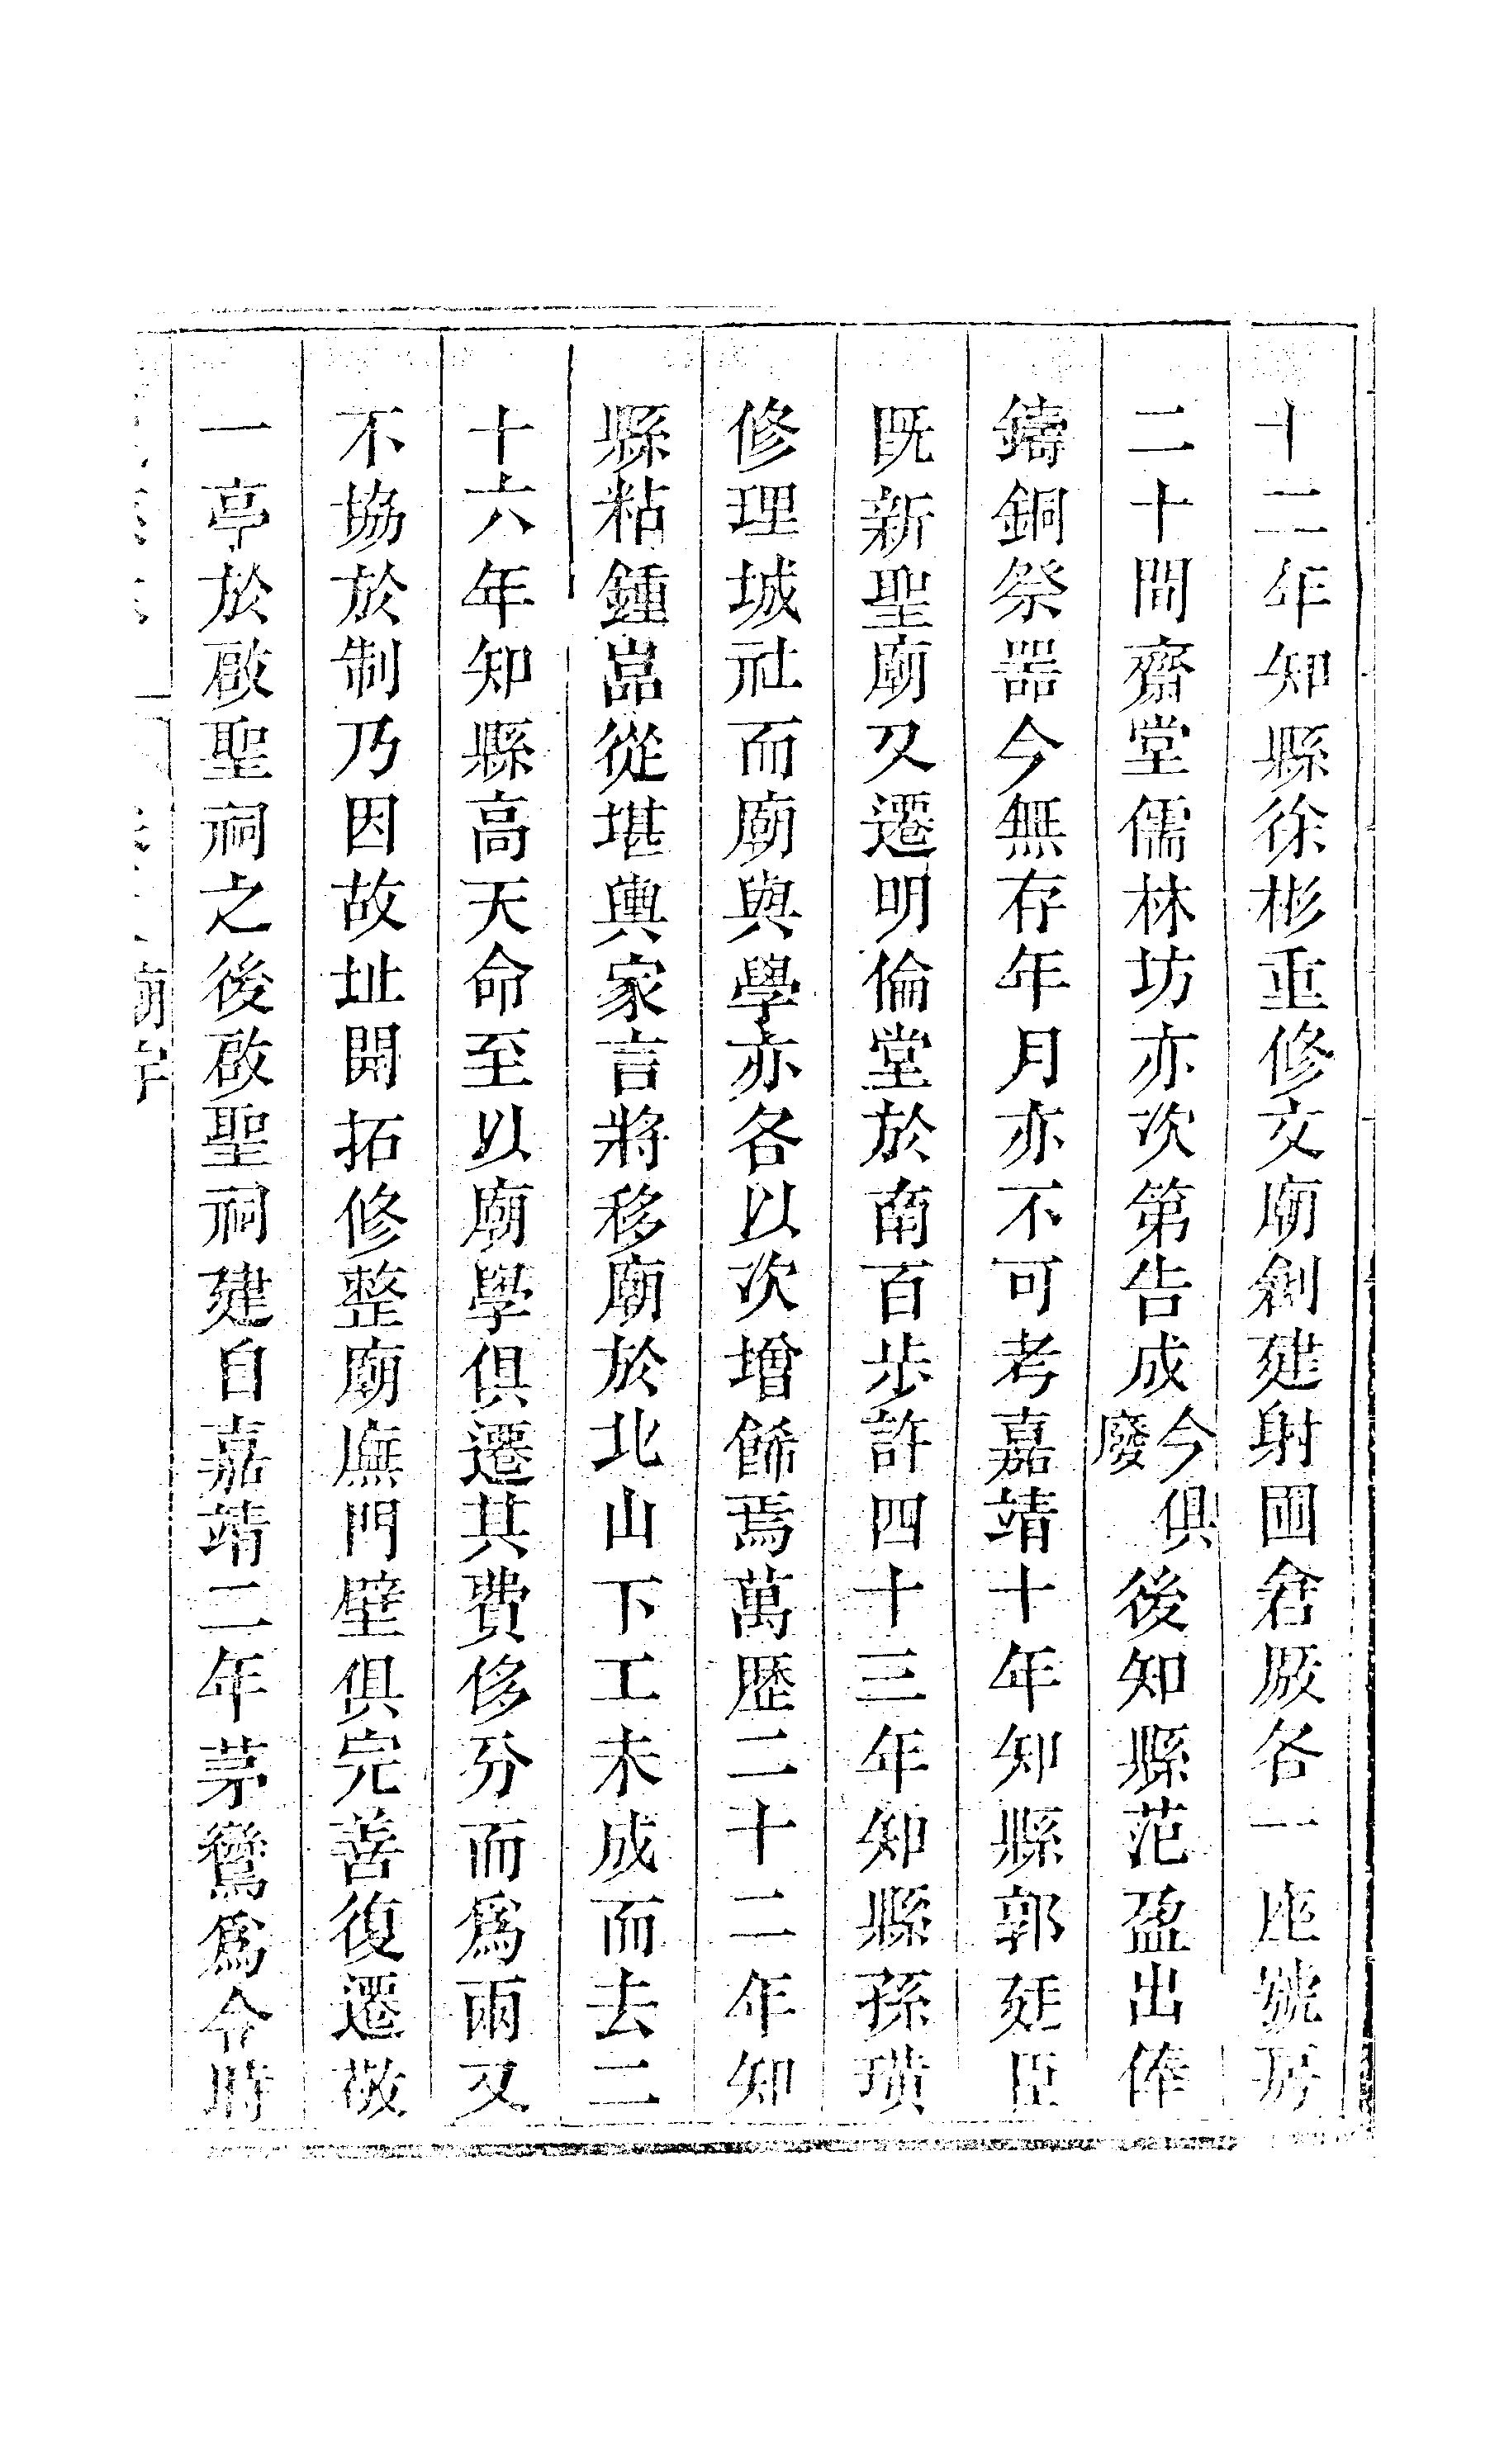 十二年知縣徐彬重修文廟創建射圃倉厫各一座號房
二十間齋堂儒林坊亦次第告成今俱廢後知縣范盈出俸
鑄銅祭器今無存年月亦不可考嘉靖十年知縣郭廷臣
既新聖廟又遷明倫堂於南百步許四十三年知縣孫璜
修理城社而廟與學亦各以次增餙焉萬歷二十二年知
縣粘鍾嵓從堪輿家言將移廟於北山下工未成而去二
十六年知縣高天命至以廟學俱遷其費侈分而爲兩又
不協於制乃因故址開拓修整廟廡門壁俱完善復遷敬
一亭於啟聖祠之後啟聖祠建自嘉靖二年茅鸞爲令時